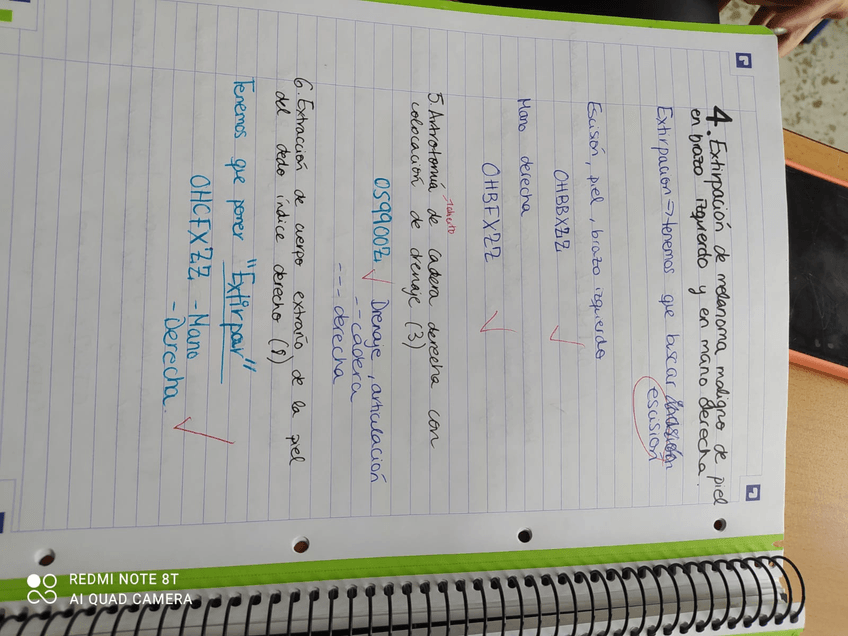 4. Extirpación de melanoma maligno de piel
en brazo izquierdo y en mano derecha.
Extirpacion → tenemos que buscar
escusión
Escisión, piel, brazo izquierdo
OHBBXZZ
Mano derecha
OHBFXZZ
5. Artrotomía de cadera derecha con
colocación de drenaje (3)
OS9900Z Drenaje, articulación
-- cadera
--- derecha
6. Extracción de cuerpo extraño de la piel
del dedo índice derecho (8)
Tenemos que poner "Extirpar"
OHCFXZZ - Mano
- Derecha.
REDMI NOTE 8T
AI QUAD CAMERA